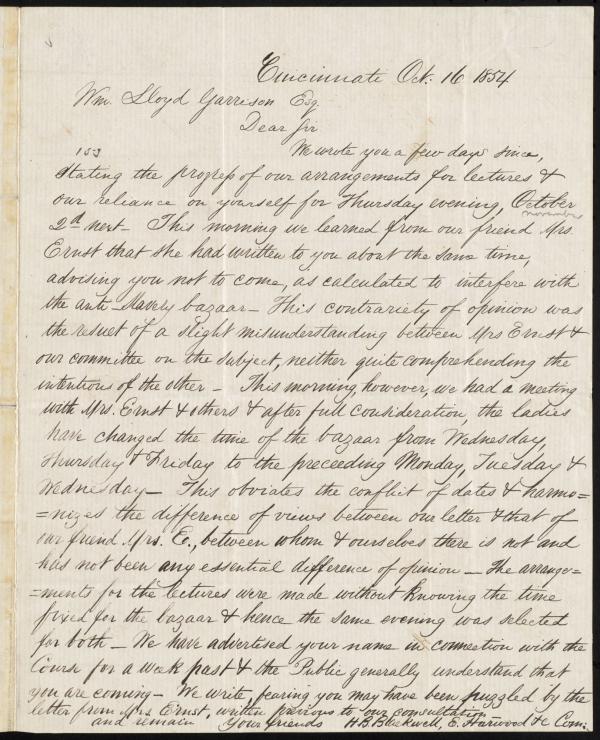 Cincinnati Oct. 16 1854
Wm. Lloyd Garrison Esq
Dear Sir
We wrote you a few days since,
stating the progress of our arrangements for lectures &
our reliance on yourself for Thursday evening, October
November
2d next - This morning we learned from our friend Mrs.
Ernst that she had written to you about the same time,
advising you not to come, as calculated to interfere with
the anti-slavery bazaar - This contrariety of opinion was
the result of a slight misunderstanding between Mrs Ernst &
our committee on the subject, neither quite comprehending the
intentions of the other - This morning, however, we had a meeting
with Mrs. Ernst & others & after full consideration, the ladies
have changed the time of the bazaar from Wednesday,
Thursday & Friday to the preceding Monday, Tuesday &
Wednesday - This obviates the conflict of dates & harmo=
=nizes the difference of views between our letter & that of
our friend Mrs. E., between whom & ourselves there is not and
has not been any essential difference of opinion - The arrange=
=ments for the lectures were made without knowing the time
fixed for the bazaar & hence the same evening was selected
for both - We have advertised your name in connection with the
Course for a week past & the Public generally understand that
you are coming - We write, fearing you may have been puzzled by the
letter from Mrs Ernst, written previous to our consultation
and remain Your friends H.B. Blackwell, E. Harwood &c Com: